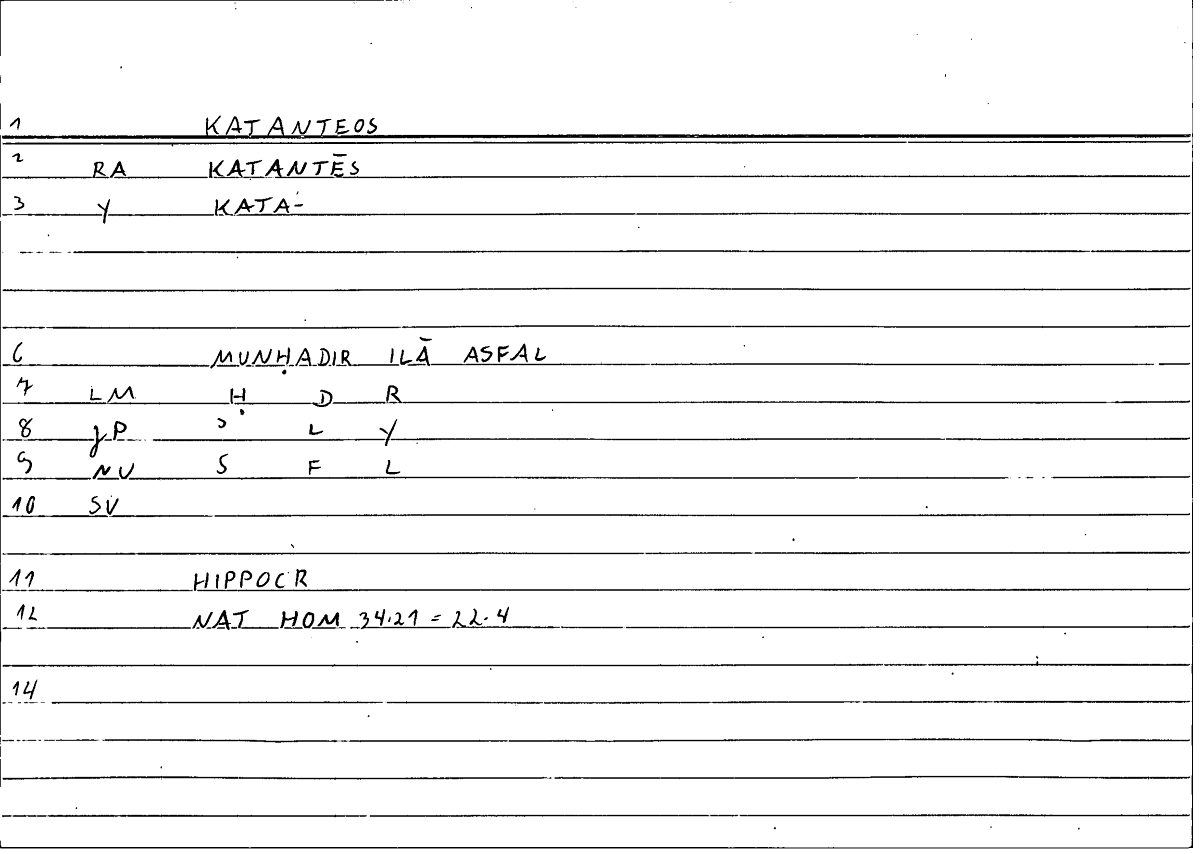 1 KATANTEOS
2 RA KATANTĒS
3 Y KATA-
6 MUNḤADIR ILĀ ASFAL
7 LM Ḥ D R
8 JP ɔ L Y
9 NU S F L
10 SV
11 HIPPOCR
12 NAT HOM 34.21 = 22.4
14